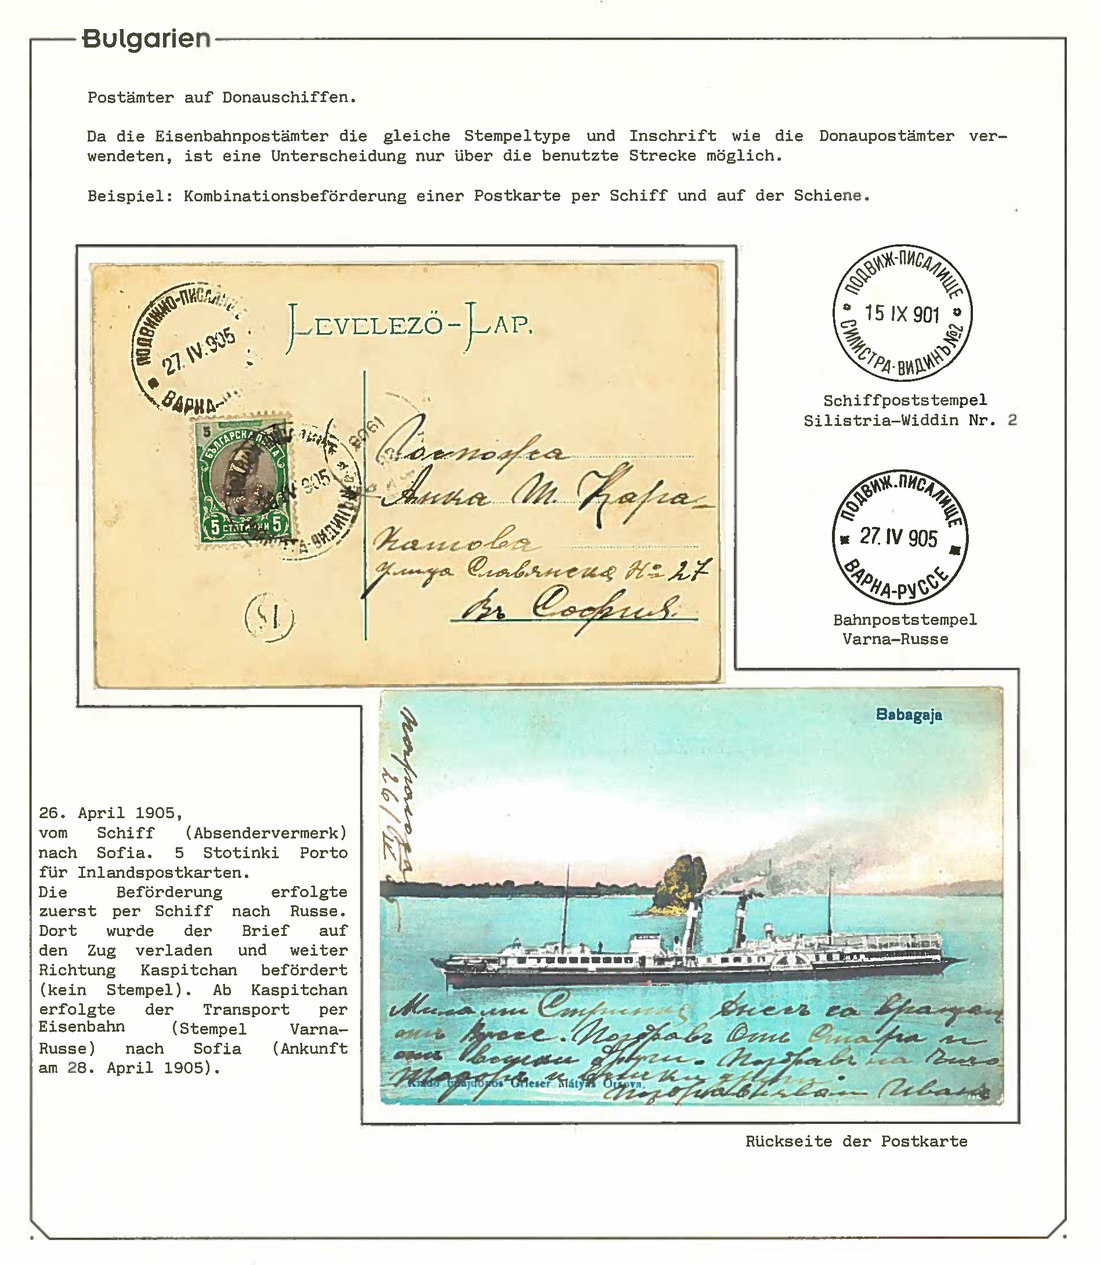 Bulgarien
Postämter auf Donauschiffen.
Da die Eisenbahnpostämter die gleiche Stempeltype und Inschrift wie die Donaupostämter ver-
wendeten, ist eine Unterscheidung nur über die benutzte Strecke möglich.
Beispiel: Kombinationsbeförderung einer Postkarte per Schiff und auf der Schiene.
ПОДВИЖНО-ПИСАЛИЩЕ
27.IV.905
ВАРНА-
LEVELEZŐ-LAP.
5
БЪЛГАРСКА ПОЩА
5 СТОТИНКИ 5
905
Госпожа
Анка Т. Кара-
улица Славянска № 27
Въ София.
15
ПОДВИЖ-ПИСАЛИЩЕ
15 IX 901
СИЛИСТРА-ВИДИНЪ №2
Schiffpoststempel
Silistria-Widdin Nr. 2
ПОДВИЖ.ПИСАЛИЩЕ
27. IV 905
ВАРНА-РУССЕ
Bahnpoststempel
Varna-Russe
Babagaja
26/IV
Мила ми Днесъ са
Руссе. Поздравъ
Поздравъ на
и всички
Иванъ
Kiadó Grieser Mátyás Orsova.
26. April 1905,
vom Schiff (Absendervermerk)
nach Sofia. 5 Stotinki Porto
für Inlandspostkarten.
Die Beförderung erfolgte
zuerst per Schiff nach Russe.
Dort wurde der Brief auf
den Zug verladen und weiter
Richtung Kaspitchan befördert
(kein Stempel). Ab Kaspitchan
erfolgte der Transport per
Eisenbahn (Stempel Varna-
Russe) nach Sofia (Ankunft
am 28. April 1905).
Rückseite der Postkarte